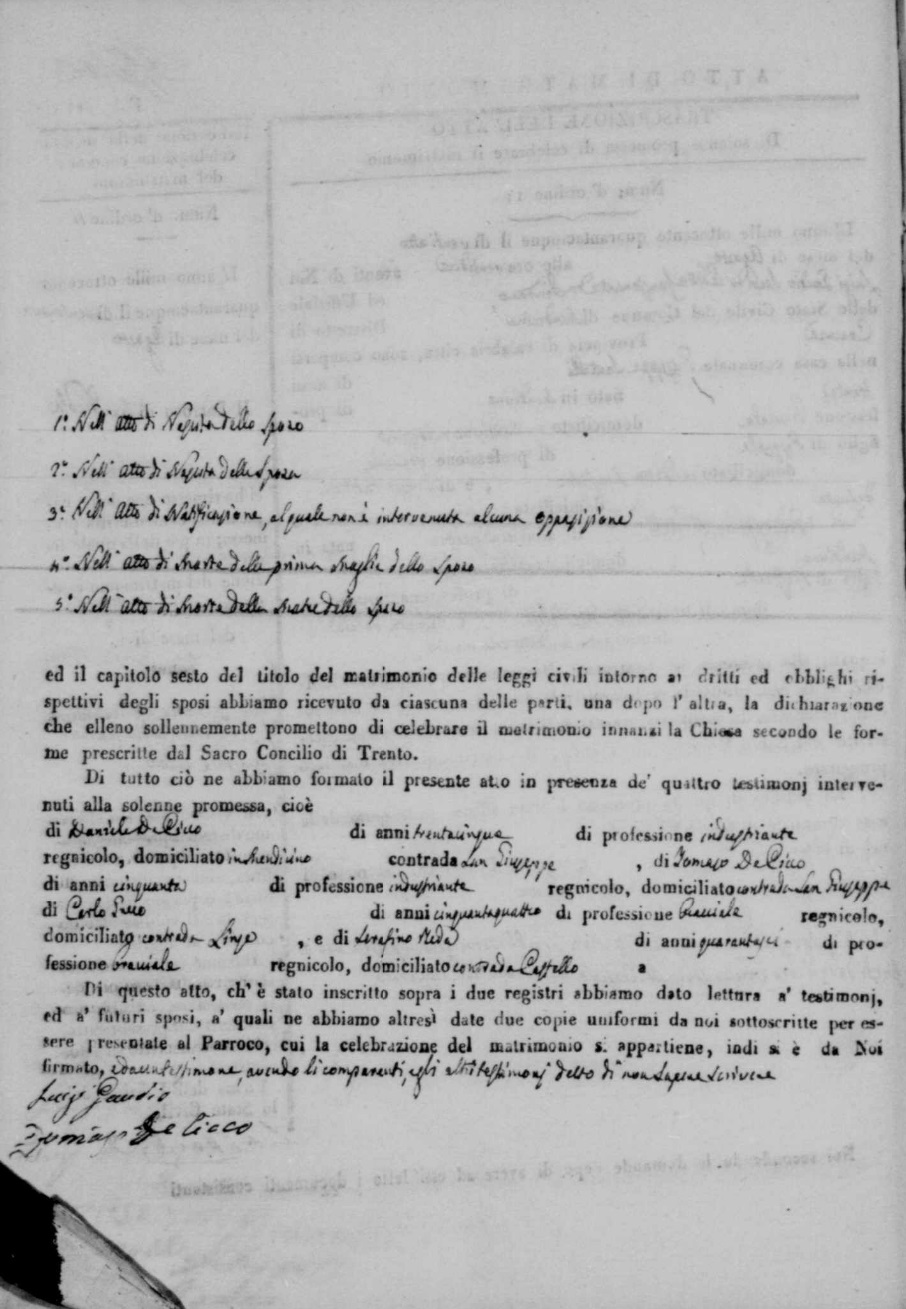 1.º Nell' atto di Nascita dello Sposo
2.º Nell' atto di Nascita della Sposa
3.º Nell' atto di Notificazione, al quale non è intervenuta alcuna opposizione
4.º Nell' atto di Morte della prima Moglie dello Sposo
5.º Nell' atto di Morte della Madre dello Sposo
ed il capitolo sesto del titolo del matrimonio delle leggi civili intorno ai dritti ed obblighi ri-
spettivi degli sposi abbiamo ricevuto da ciascuna delle parti, una dopo l' altra, la dichiarazione
che elleno sollennemente promettono di celebrare il matrimonio innanzi la Chiesa secondo le for-
me prescritte dal Sacro Concilio di Trento.
Di tutto ciò ne abbiamo formato il presente atto in presenza de' quattro testimonj interve-
nuti alla solenne promessa, cioè
di Daniele De Cicco di anni trentacinque di professione industriante
regnicolo, domiciliato in Mendicino contrada San Giuseppe , di Tomaso De Cicco
di anni cinquanta di professione industriante regnicolo, domiciliato contrada San Giuseppe
di Carlo Greco di anni cinquantaquattro di professione Braciale regnicolo,
domiciliato contrada , e di Serafino Reda di anni quarantasei di pro-
fessione braciale regnicolo, domiciliato contrada Castello a
Di questo atto, ch' è stato inscritto sopra i due registri abbiamo dato lettura a' testimonj,
ed a' futuri sposi, a' quali ne abbiamo altresì date due copie uniformi da noi sottoscritte per es-
sere presentate al Parroco, cui la celebrazione del matrimonio si appartiene, indi si è da Noi
firmato, e da un testimone, avendo li comparenti, e gli altri testimonj detto di non sapere scrivere
Luigi Gaudio
Tomaso De Cicco